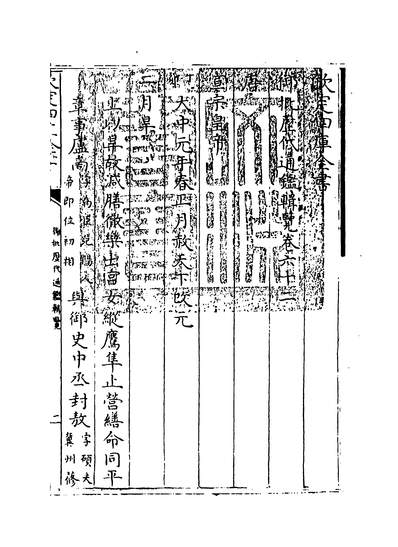 欽定四庫全書
御批歷代通鑑輯覽卷六十二
唐
宣宗皇帝
大中元年春正月赦天下改元
二月旱
上以旱故减膳徹樂出宮女縱鷹隼止營繕命同平
章事盧商 帝即位初相 與御史中丞封敖 字碩夫冀州蓨
御批歷代通鑑輯覽